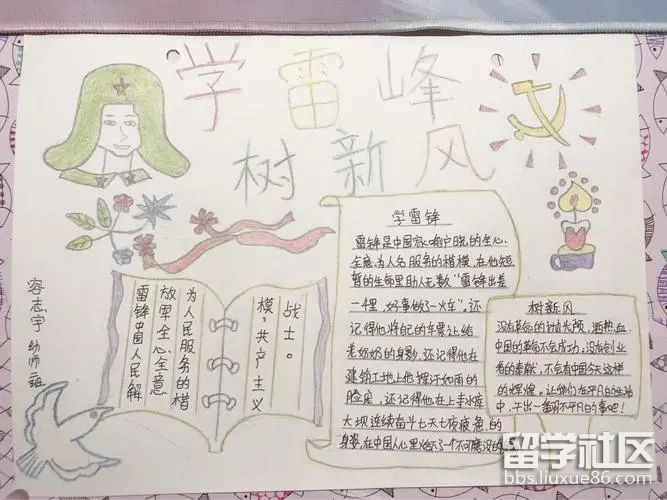 学雷峰
树新风
学雷锋
雷锋是中国家喻户晓的全心
全意为人名服务的楷模,在他短
暂的生命里助人无数“雷锋出差
一程,好事做了一火车”,还
记得他将自己的车票让给
老奶奶的身影,还记得他在
建筑工地上他挥汗如雨的
脸庞,还记得他在上寺水库
大坝连续奋斗七天七夜疲惫的
身姿,在中国人心里
树新风
没有革命的
中国的革命不会成功;没有创业
者的奉献,不会有中国今天这样
的辉煌。让我们在平凡的生活
中,干出一番不平凡的事吧!
雷锋中国人民解
放军全心全意
为人民服务的楷
模,共产主义
战士。
容志宇 幼师二班
留学社区
bbs.liuxue86.com